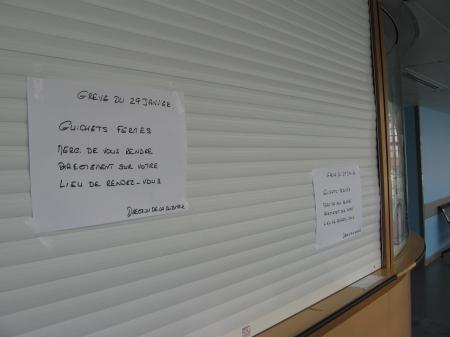 GREVE DU 29 JANVIER
GUICHETS FERMES
MERCI DE VOUS RENDRE
DIRECTEMENT SUR VOTRE
LIEU DE RENDEZ-VOUS
GREVE DU 29 JANVIER
GUICHETS FERMES
MERCI DE VOUS RENDRE
DIRECTEMENT SUR VOTRE
LIEU DE RENDEZ-VOUS